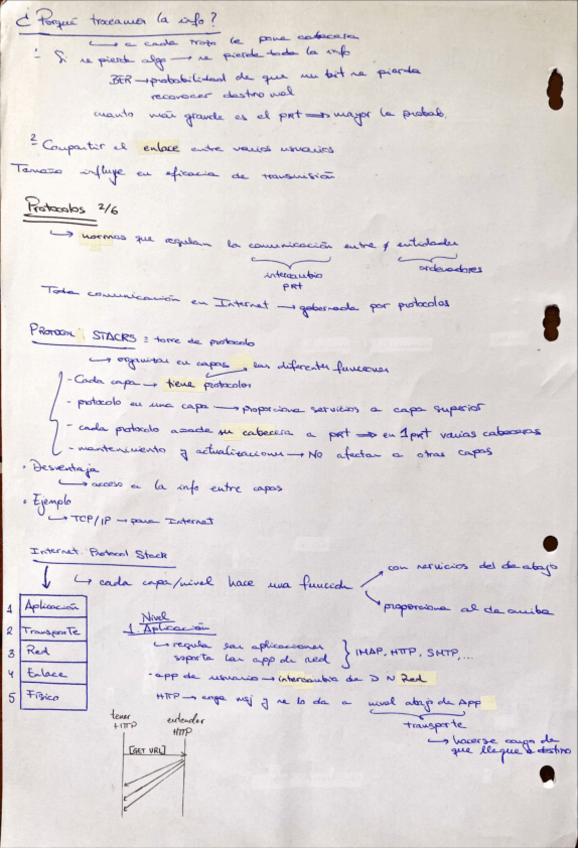 ¿Porqué troceamos la info?
↳ a cada trozo le pone cabecera
1- Si se pierde algo → se pierde toda la info
BER → probabilidad de que un bit se pierda
reconocer destro mal
cuanto más grande es el pkt ⇒ mayor la probab.
2- Compartir el enlace entre varios usuarios
Tamaño influye en eficacia de transmisión
Protocolos 2/6
↳ normas que regulan la comunicación entre ≠ entidades
intercambio pkt
ordenadores
Toda comunicación en Internet → gobernada por protocolos
Protocol STACKS = torre de protocolo
↳ organizar en capas las diferentes funciones
- Cada capa → tiene protocolos
- protocolo en una capa → proporciona servicios a capa superior
- cada protocolo añade su cabecera a pkt ⇒ en 1 pkt varias cabeceras
- mantenimiento y actualizaciones → No afectan a otras capas
• Desventaja
↳ acceso a la info entre capas
• Ejemplo
↳ TCP/IP → para Internet
Internet Protocol Stack
↳ cada capa/nivel hace una función
con servicios del de abajo
proporciona al de arriba
1 Aplicación
2 Transporte
3 Red
4 Enlace
5 Físico
Nivel
1 Aplicación
↳ regula las aplicaciones
soporta las app de red } IMAP, HTTP, SMTP,...
- app de usuario → intercambio de D N Red
HTTP → coge msj y se lo da a nivel abajo de App
transporte
↳ hacerse cargo de
que llegue a destino
tener HTTP
entender HTTP
[GET URL]